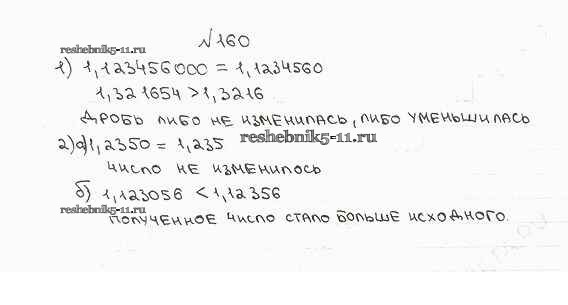 №160
reshebnik5-11.ru
1) 1,123456000 = 1,1234560
1,321654 > 1,3216
ДРОБЬ ЛИБО НЕ ИЗМЕНИЛАСЬ, ЛИБО УМЕНЬШИЛАСЬ
2) а) 1,2350 = 1,235 reshebnik5-11.ru
ЧИСЛО НЕ ИЗМЕНИЛОСЬ
б) 1,123056 < 1,12356
reshebnik5-11.ru
ПОЛУЧЕННОЕ ЧИСЛО СТАЛО БОЛЬШЕ ИСХОДНОГО.